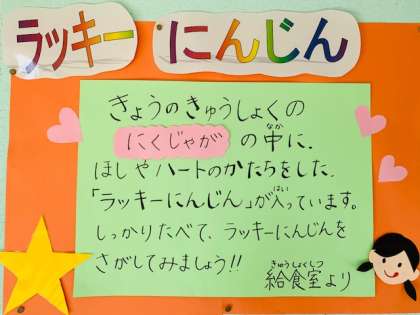 ラッキー にんじん
きょうのきゅうしょくの
にくじゃが の中に、
なか
ほしやハートのかたちをした、
「ラッキーにんじん」が入っています。
はい
しっかりたべて、ラッキーにんじんを
さがしてみましょう!!
きゅうしょくしつ
給食室より